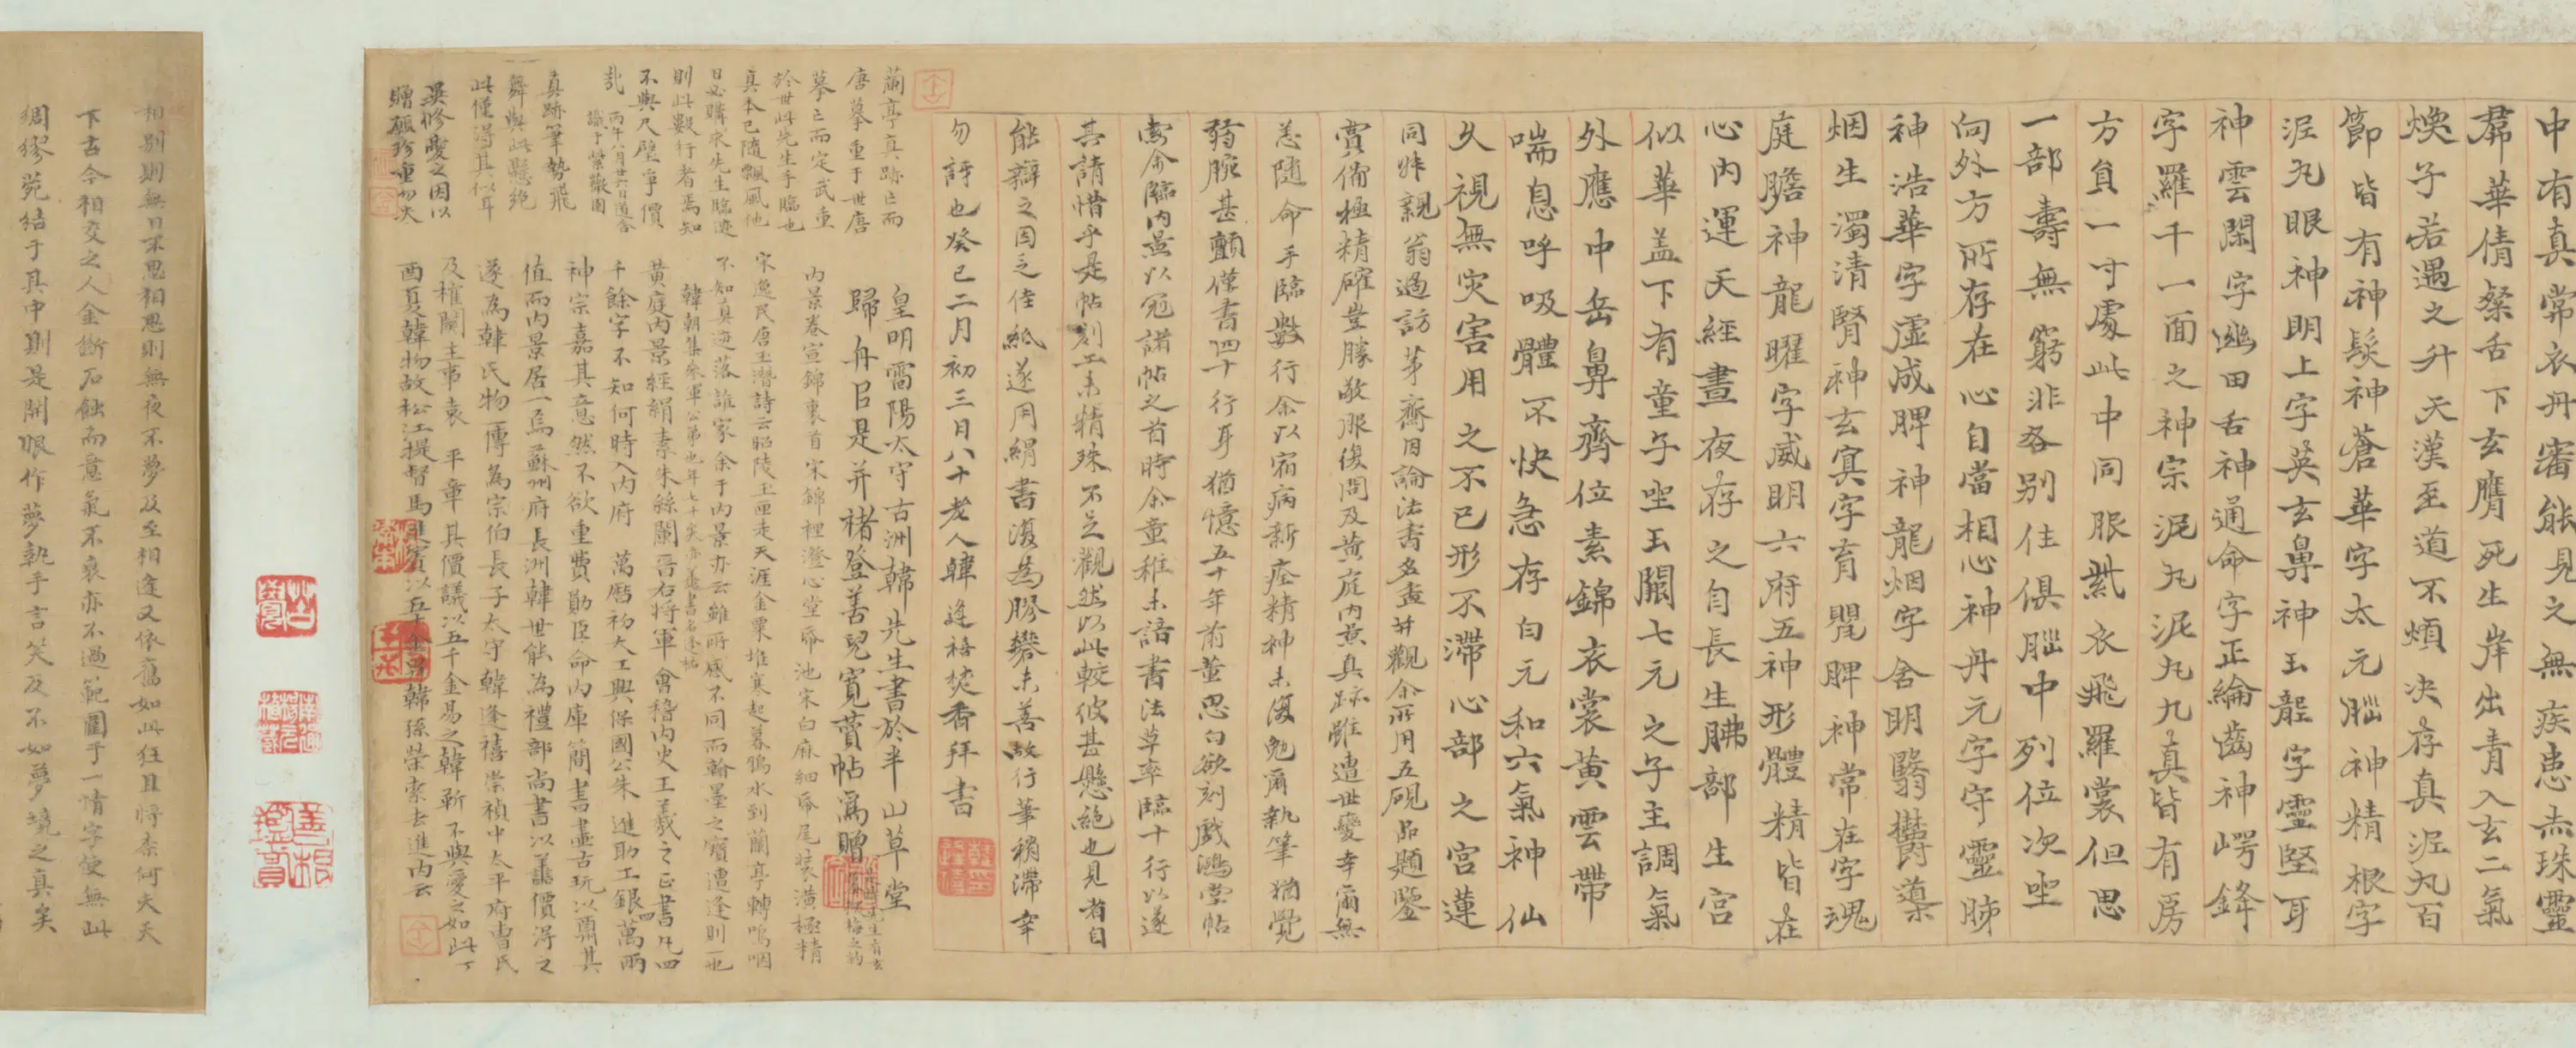 中有真常衣丹審能見之無疾患赤珠靈
帬華倩粲舌下玄膺死生岸出青入玄二氣
煥子若遇之升天漢至道不煩决存真泥丸百
節皆有神髮神蒼華字太元腦神精根字
泥丸眼神明上字英玄鼻神玉壟字靈堅耳
神雲閑字幽田舌神通命字正綸齒神崿鋒
字羅千一面之神宗泥丸泥丸九真皆有房
方負一寸處此中同服紫衣飛羅裳但思
一部壽無窮非各别住俱腦中列位次坐
向外方所存在心自當相心神丹元字守靈肺
神浩華字虛成脾神龍烟字含明翳欝導
烟生濁清腎神玄冥字育嬰脾神常在字魂
庭膽神龍曜字威明六府五神形體精皆在
心內運天經晝夜存之自長生肺部生宮
似華盖下有童子坐玉闕七元之子主調氣
外應中岳鼻齊位素錦衣裳黃雲帶
喘息呼吸體不快急存白元和六氣神仙
久視無灾害用之不已形不滯心部之宮蓮
同姝親翁過訪茅齋因論法書名畫并觀余所用五硯品題鑒
賞備極精確豈勝敬服復問及黃庭內景真跡雖遭世變幸爾無
恙隨命手臨數行余以宿病新痊精神未復勉爾執筆猶覺
弱腕甚顫僅書四十行耳猶憶五十年前董思白欲刻戲鴻堂帖
索余臨內景以冠諸帖之首時余童稚未諳書法草率臨十行以遂
其請惜乎是帖刻工未精殊不足觀然以此較彼甚懸絕也見者自
能辯之因乏佳紙遂用絹書復為膠礬未善故行筆稍滯幸
勿訝也癸巳二月初三日八十老人韓逢禧焚香拜書
蘭亭真跡亡而
唐摹重于世唐
摹亡而定武重
於世此先生手臨也
真本已隨飄風他
日必購求先生臨迹
則此數行者焉知
不與尺璧爭價
哉 丙午八月廿六日道舍
識于紫薇園
真跡筆勢飛
舞與此懸絕
此僅得其似耳
吳修愛之因以
贈願珍重勿失
皇明雷陽太守古洲韓先生書於半山草堂
歸舟呂是并褚登善兒寬贊帖為贈
內景卷宣錦裹首宋錦裡澄心堂帋池宋白麻細帋尾裝潢極精
宋逸民唐玉潛詩云昭陵玉匣走天涯金粟堆寒起暮鴉水到蘭亭轉嗚咽
不知真迹落誰家余于內景亦云雖所感不同而翰墨之寶遭逢則一也
韓朝集
黃庭內景經絹素朱絲闌晉右將軍會稽內史王羲之正書凡四
千餘字不知何時入內府 萬曆初大工興保國公朱進助工銀萬兩
神宗嘉其意然不欲重費勛臣命內庫簡書畫古玩以酬其
值而內景居一焉蘇州府長洲韓世能為禮部尚書以善價得之
遂為韓氏物傳為宗伯長子太守韓逢禧崇禎中太平府曹氏
及榷關主事袁 平章其價議以五千金易之韓靳不與愛之如此丁
酉夏韓物故松江提督馬進寶以五千金畀韓孫榮索去進內云
相別則無日不思相思則無夜不夢及至相逢又依舊如此狂且將柰何夫天
下古今相交之人金斷石蝕而意氣不衰亦不過範圍于一情字使無此
綢繆菀結于其中則是開眼作夢執手言笑反不如夢境之真矣